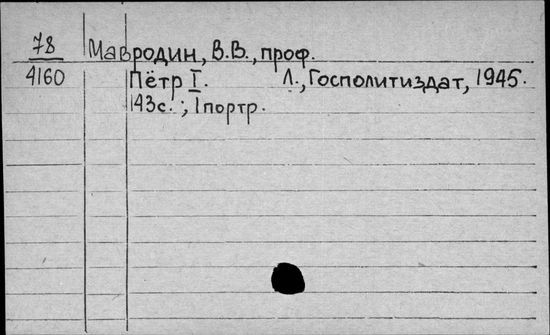 78 Мавродин, В.В., проф.
4160 Пётр I. Л., Госполитиздат, 1945.
143с.; 1 портр.